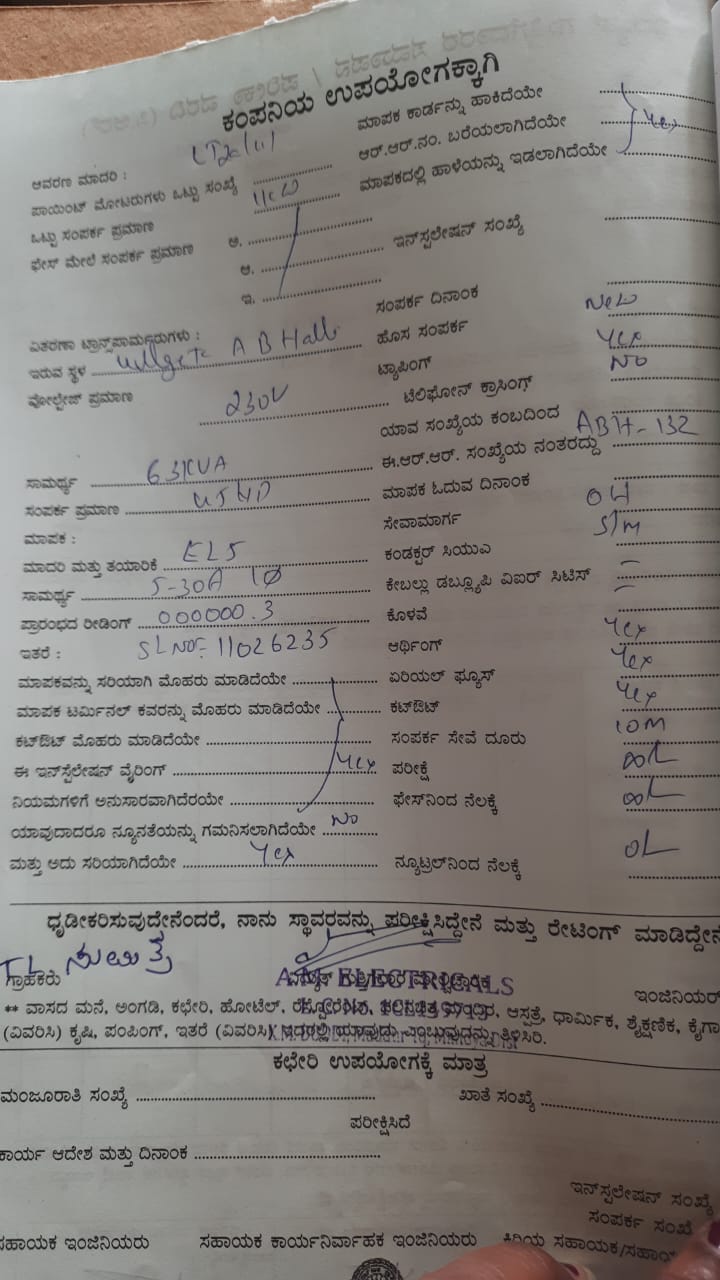 ಕಂಪನಿಯ ಉಪಯೋಗಕ್ಕಾಗಿ
ಆವರಣ ಮಾದರಿ :
ಪಾಯಿಂಟ್ ಮೋಟರುಗಳು ಒಟ್ಟು ಸಂಖ್ಯೆ
ಒಟ್ಟು ಸಂಪರ್ಕ ಪ್ರಮಾಣ
ಫೇಸ್ ಮೇಲೆ ಸಂಪರ್ಕ ಪ್ರಮಾಣ ಅ.
ಆ.
ಇ.
ವಿತರಣಾ ಟ್ರಾನ್ಸ್‌ಪಾರ್ಮರುಗಳು :
ಇರುವ ಸ್ಥಳ A B Halli
ವೋಲ್ಟೇಜ್ ಪ್ರಮಾಣ 230V
ಸಾಮರ್ಥ್ಯ 63KVA
ಸಂಪರ್ಕ ಪ್ರಮಾಣ
ಮಾಪಕ :
ಮಾದರಿ ಮತ್ತು ತಯಾರಿಕೆ EL5
ಸಾಮರ್ಥ್ಯ 5-30A 1Ø
ಪ್ರಾರಂಭದ ರೀಡಿಂಗ್ 000000.3
ಇತರೆ : SL NO:- 11026235
ಮಾಪಕವನ್ನು ಸರಿಯಾಗಿ ಮೊಹರು ಮಾಡಿದೆಯೇ
ಮಾಪಕ ಟರ್ಮಿನಲ್ ಕವರನ್ನು ಮೊಹರು ಮಾಡಿದೆಯೇ
ಕಟ್‌ಔಟ್ ಮೊಹರು ಮಾಡಿದೆಯೇ
ಈ ಇನ್‌ಸ್ಟಲೇಷನ್ ವೈರಿಂಗ್ Yes
ನಿಯಮಗಳಿಗೆ ಅನುಸಾರವಾಗಿದೆರಯೇ
ಯಾವುದಾದರೂ ನ್ಯೂನತೆಯನ್ನು ಗಮನಿಸಲಾಗಿದೆಯೇ No
ಮತ್ತು ಅದು ಸರಿಯಾಗಿದೆಯೇ Yes
ಮಾಪಕ ಕಾರ್ಡನ್ನು ಹಾಕಿದೆಯೇ
ಆರ್.ಆರ್.ನಂ. ಬರೆಯಲಾಗಿದೆಯೇ Yes
ಮಾಪಕದಲ್ಲಿ ಹಾಳೆಯನ್ನು ಇಡಲಾಗಿದೆಯೇ
ಇನ್‌ಸ್ಪಲೇಷನ್ ಸಂಖ್ಯೆ
ಸಂಪರ್ಕ ದಿನಾಂಕ
ಹೊಸ ಸಂಪರ್ಕ New
ಟ್ಯಾಪಿಂಗ್ Yes
ಟೆಲಿಫೋನ್ ಕ್ರಾಸಿಂಗ್ No
ಯಾವ ಸಂಖ್ಯೆಯ ಕಂಬದಿಂದ
ಈ.ಆರ್.ಆರ್. ಸಂಖ್ಯೆಯ ನಂತರದ್ದು ABH-132
ಮಾಪಕ ಓದುವ ದಿನಾಂಕ
ಸೇವಾಮಾರ್ಗ OH
ಕಂಡಕ್ಟರ್ ಸಿಯುಎ
ಕೇಬಲ್ಲು ಡಬ್ಲ್ಯೂಪಿ ವಿಐರ್ ಸಿಟಿಸ್
ಕೊಳವೆ
ಆರ್ಥಿಂಗ್ Yes
ಏರಿಯಲ್ ಫ್ಯೂಸ್ Yes
ಕಟ್‌ಔಟ್ Yes
ಸಂಪರ್ಕ ಸೇವೆ ದೂರು 10M
ಪರೀಕ್ಷೆ
ಫೇಸ್‌ನಿಂದ ನೆಲಕ್ಕೆ
ನ್ಯೂಟ್ರಲ್‌ನಿಂದ ನೆಲಕ್ಕೆ
ಧೃಡೀಕರಿಸುವುದೇನೆಂದರೆ, ನಾನು ಸ್ಥಾವರವನ್ನು ಪರೀಕ್ಷಿಸಿದ್ದೇನೆ ಮತ್ತು ರೇಟಿಂಗ್ ಮಾಡಿದ್ದೇನೆ
ಸುಮಿತ್ರ
ಗ್ರಾಹಕರು ELECTRICALS ಇಂಜಿನಿಯರ್
** ವಾಸದ ಮನೆ, ಅಂಗಡಿ, ಕಛೇರಿ, ಹೋಟೆಲ್, ಆಸ್ಪತ್ರೆ, ಧಾರ್ಮಿಕ, ಶೈಕ್ಷಣಿಕ,
(ವಿವರಿಸಿ) ಕೃಷಿ, ಪಂಪಿಂಗ್, ಇತರೆ (ವಿವರಿಸಿ) ಇದರಲ್ಲಿ ಯಾವುದು ಎಂಬುವುದನ್ನು ತಿಳಿಸಿರಿ.
ಕಛೇರಿ ಉಪಯೋಗಕ್ಕೆ ಮಾತ್ರ
ಮಂಜೂರಾತಿ ಸಂಖ್ಯೆ ಖಾತೆ ಸಂಖ್ಯೆ
ಪರೀಕ್ಷಿಸಿದೆ
ಕಾರ್ಯ ಆದೇಶ ಮತ್ತು ದಿನಾಂಕ
ಇನ್‌ಸ್ಪಲೇಷನ್ ಸಂಖ್ಯೆ
ಸಂಪರ್ಕ ಸಂಖ್ಯೆ
ಸಹಾಯಕ ಇಂಜಿನಿಯರು ಸಹಾಯಕ ಕಾರ್ಯನಿರ್ವಾಹಕ ಇಂಜಿನಿಯರು ಕಿರಿಯ ಸಹಾಯಕ/